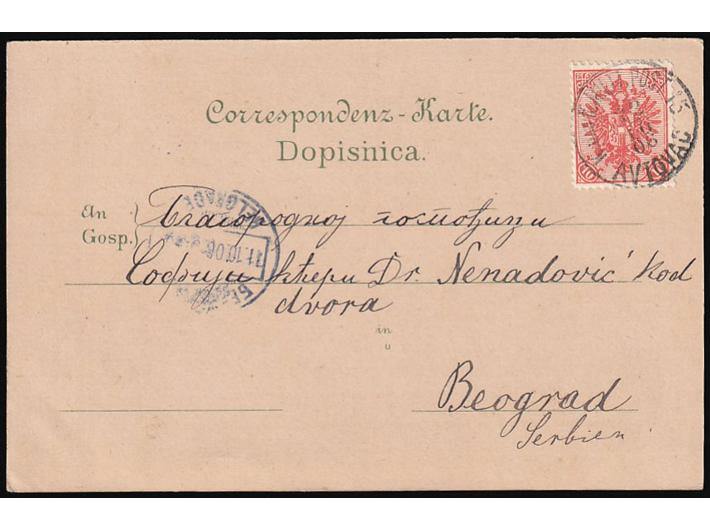 Correspondenz-Karte.
Dopisnica.
An
Gosp.
Благородној госпођици
Софији кћери Dr. Nenadović kod
dvora
in
u
Beograd
Serbien
AVTOVAC
10
BELGRADE
11.10.06